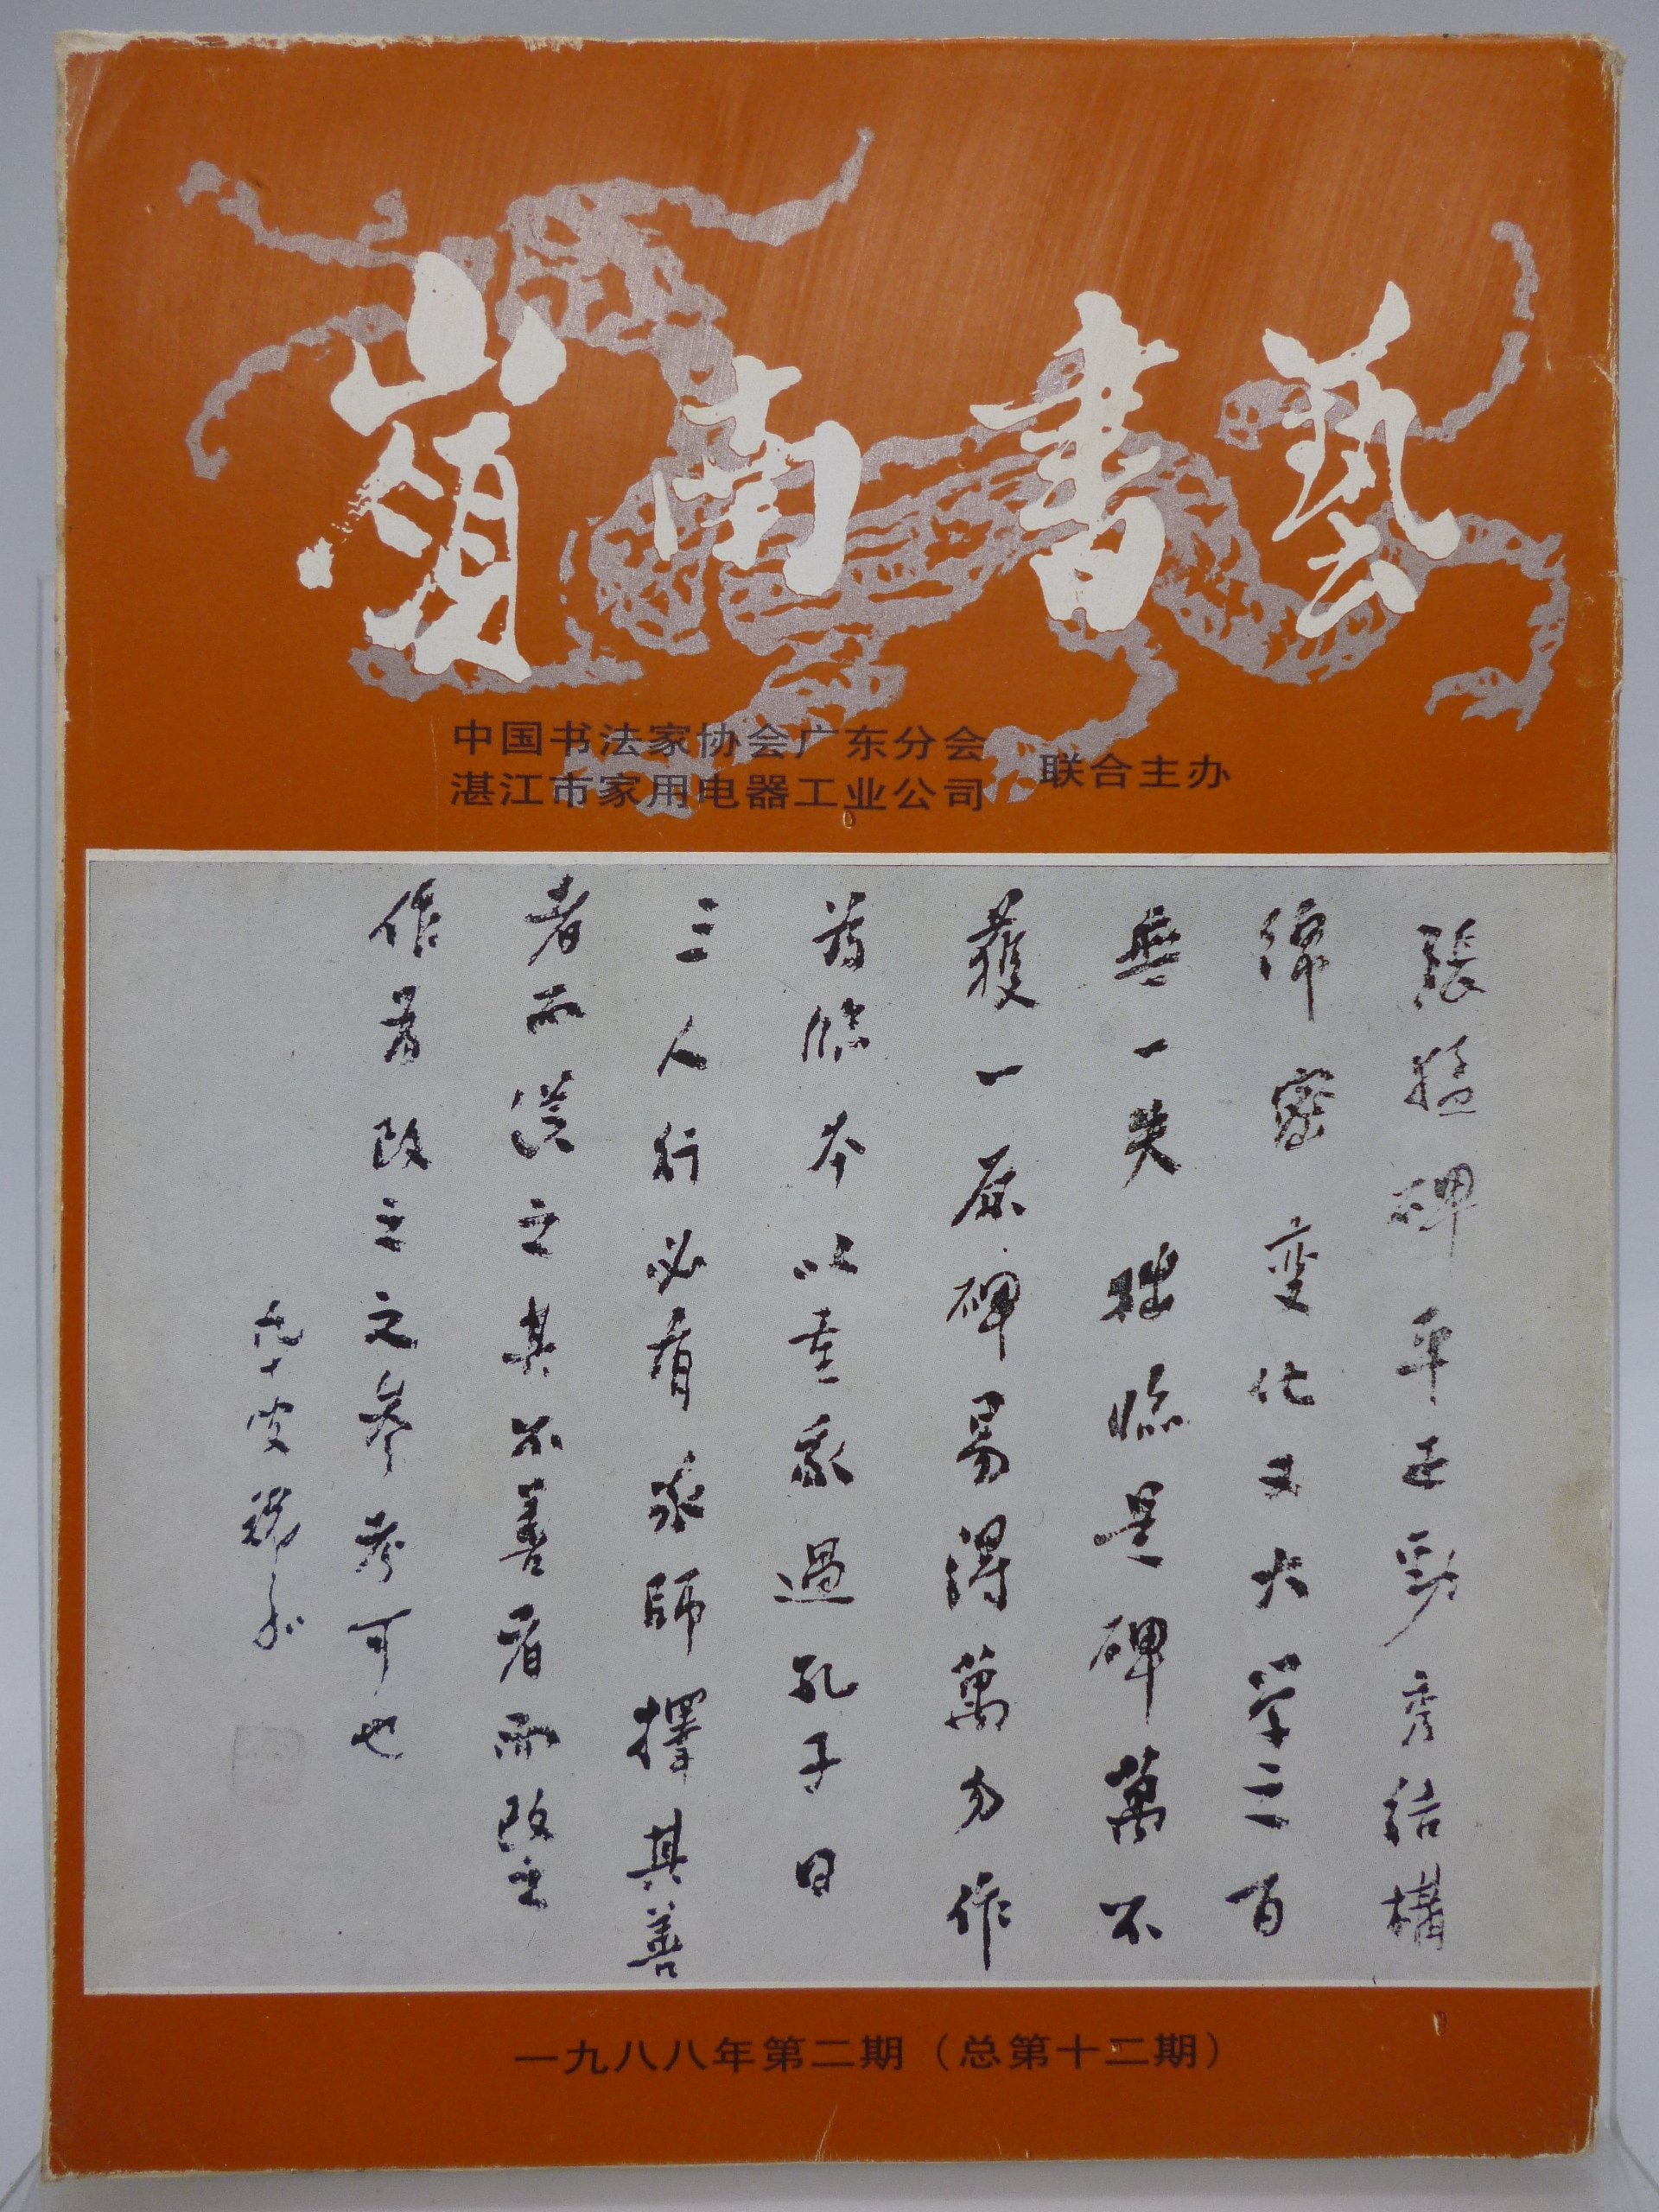 嶺南書藝
中国书法家协会广东分会
湛江市家用电器工业公司
联合主办
張猛碑平正勁秀結構
密变化又大学二百
無一失拙臨是碑萬不
獲一原碑易得萬勿作
為臨本以重我過孔子曰
三人行必有我師擇其善
者而從之其不善者而改之
作為改之之參考可也
九十叟祝嘉
一九八八年第二期（总第十二期）